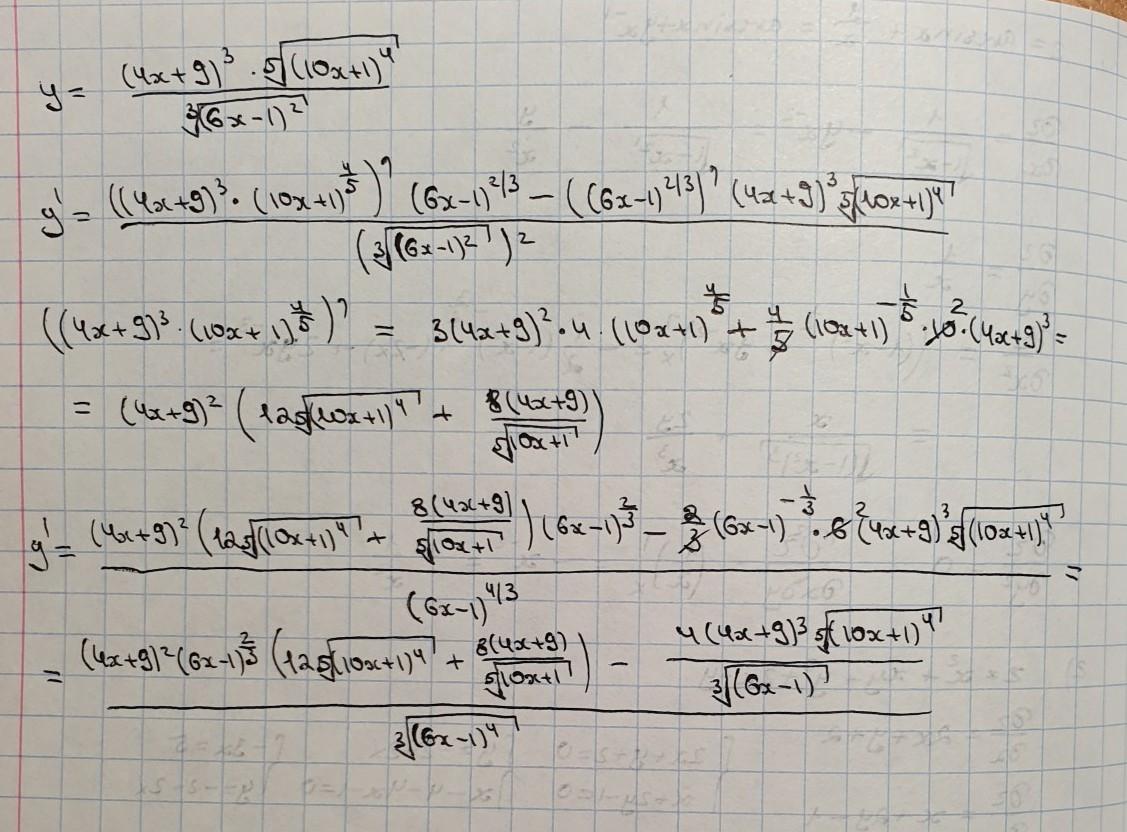 y = \frac{(4x+9)^3 \cdot \sqrt[5]{(10x+1)^4}}{\sqrt[3]{(6x-1)^2}}
y' = \frac{((4x+9)^3 \cdot (10x+1)^{\frac{4}{5}})' (6x-1)^{2/3} - ((6x-1)^{2/3})' (4x+9)^3 \sqrt[5]{(10x+1)^4}}{(\sqrt[3]{(6x-1)^2})^2}
((4x+9)^3 \cdot (10x+1)^{\frac{4}{5}})' = 3(4x+9)^2 \cdot 4 \cdot (10x+1)^{\frac{4}{5}} + \frac{4}{\cancel{5}} (10x+1)^{-\frac{1}{5}} \cdot \cancel{10}^2 \cdot (4x+9)^3 =
= (4x+9)^2 (12\sqrt[5]{(10x+1)^4} + \frac{8(4x+9)}{\sqrt[5]{10x+1}})
y' = \frac{(4x+9)^2 (12\sqrt[5]{(10x+1)^4} + \frac{8(4x+9)}{\sqrt[5]{10x+1}}) (6x-1)^{\frac{2}{3}} - \frac{2}{\cancel{3}} (6x-1)^{-\frac{1}{3}} \cdot \cancel{6}^2 (4x+9)^3 \sqrt[5]{(10x+1)^4}}{(6x-1)^{4/3}} =
= \frac{(4x+9)^2 (6x-1)^{\frac{2}{3}} (12\sqrt[5]{(10x+1)^4} + \frac{8(4x+9)}{\sqrt[5]{10x+1}}) - \frac{4(4x+9)^3 \sqrt[5]{(10x+1)^4}}{\sqrt[3]{(6x-1)}}}{\sqrt[3]{(6x-1)^4}}